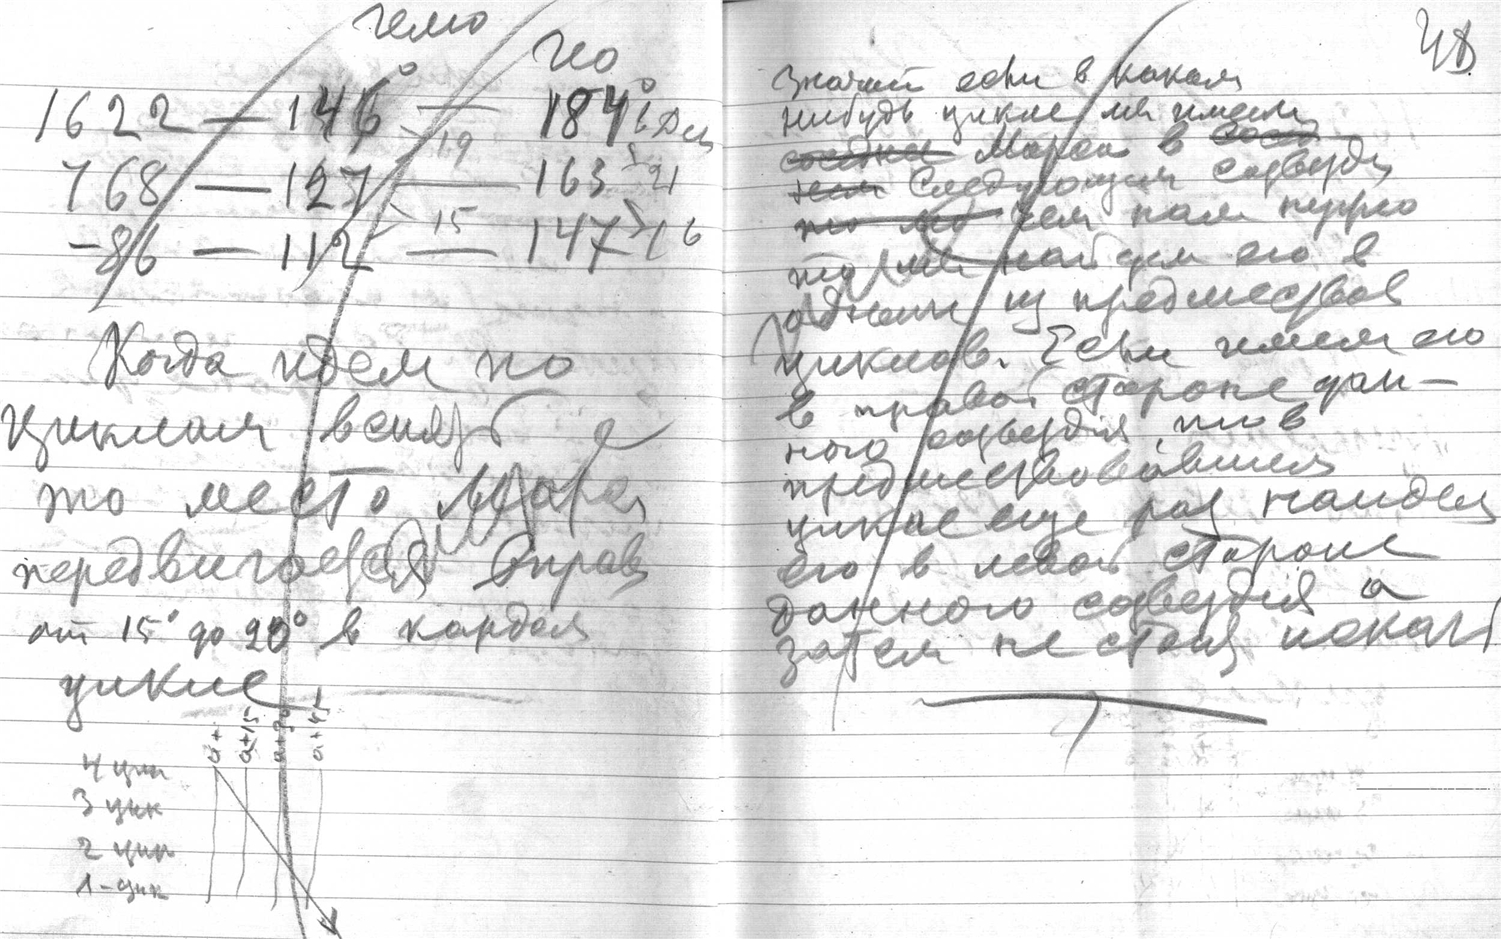 гело
гео
1622 — 146° — 184° 6 Дец
19
768 — 127 — 163 21
15
-86 — 112 — 147 16
Когда идем по
циклам вспять
то место Марса
передвигается вправо
от 15° до 20° в каждом
цикле
а+ а+15 а+30 а+45
4 цик
3 цик
2 цик
1-цик
Значит если в каком
нибудь цикле мы имеем
Марса в
следующем созвезди
чем нам нужно
то мы найдем его в
одном из предшествов
циклов. Если имеем его
в правой стороне дан-
ного созвездия, то в
предшествовавшем
цикле еще раз найдем
его в левой стороне
данного созвездия а
затем не стоит искать